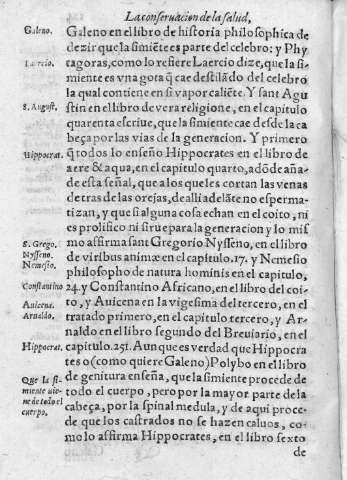 La conseruacion de la salud,
Galeno.
Galeno en el libro de historia philosophica de
dezir que la simiẽte es parte del celebro: y Phy
Laercio.
tagoras, como lo refiere Laercio dize, que la si-
miente es vna gota q̃ cae destilãdo del celebro
la qual contiene en si vapor caliẽte. Y sant Agu
S. August.
stin en el libro de vera religione, en el capitulo
quarenta escriue, que la simiente cae desde la ca
beça por las vias de la generacion. Y primero
Hippocrat.
q̃ todos lo enseño Hippocrates en el libro de
aere & aqua, en el capitulo quarto, adõde aña-
de esta señal, que a los que les cortan las venas
detras de las orejas, de alli adelãte no esperma-
tizan, y que si alguna cosa echan en el coito, ni
es prolifico ni sirue para la generacion y lo mis
S. Grego.
Nysseno.
Nemesio.
mo affirma sant Gregorio Nysseno, en el libro
de viribus animæ en el capitulo. 17. y Nemesio
philosopho de natura hominis en el capitulo,
Constantino
24. y Constantino Africano, en el libro del coi-
Auicena.
to, y Auicena en la vigesima del tercero, en el
Arnaldo.
tratado primero, en el capitulo tercero, y Ar-
naldo en el libro segundo del Breuiario, en el
Hippocrat.
capitulo. 251. Aunque es verdad que Hippocra
tes o (como quiere Galeno) Polybo en el libro
de genitura enseña, que la simiente procede de
Que la si-
miente uie-
ne de todo el
cuerpo.
todo el cuerpo, pero por la mayor parte de la
cabeça, por la spinal medula, y de aqui proce-
de que los castrados no se hazen caluos, co-
mo lo affirma Hippocrates, en el libro sexto
de